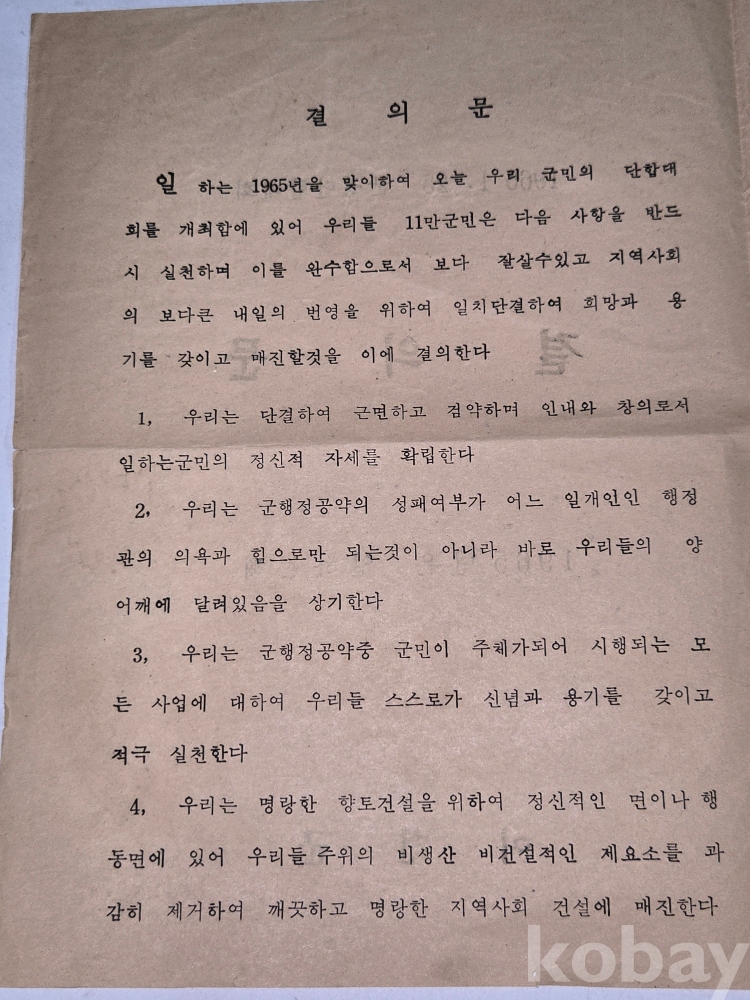 결 의 문
일 하는 1965년을 맞이하여 오늘 우리 군민의 단합대
회를 개최함에 있어 우리들 11만군민은 다음 사항을 반드
시 실천하며 이를 완수함으로서 보다 잘살수있고 지역사회
의 보다큰 내일의 번영을 위하여 일치단결하여 희망과 용
기를 갖이고 매진할것을 이에 결의한다
1, 우리는 단결하여 근면하고 검약하며 인내와 창의로서
일하는군민의 정신적 자세를 확립한다
2, 우리는 군행정공약의 성패여부가 어느 일개인인 행정
관의 의욕과 힘으로만 되는것이 아니라 바로 우리들의 양
어깨에 달려있음을 상기한다
3, 우리는 군행정공약중 군민이 주체가되어 시행되는 모
든 사업에 대하여 우리들 스스로가 신념과 용기를 갖이고
적극 실천한다
4, 우리는 명랑한 향토건설을 위하여 정신적인 면이나 행
동면에 있어 우리들 주위의 비생산 비건설적인 제요소를 과
감히 제거하여 깨끗하고 명랑한 지역사회 건설에 매진한다
kobay